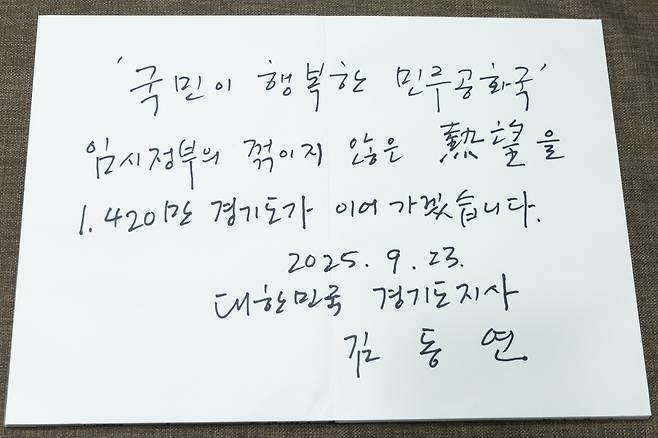 '국민이 행복한 민주공화국'
임시정부의 꺾이지 않은 熱望을
1.420만 경기도가 이어 가겠습니다.
2025. 9. 23.
대한민국 경기도지사
김동연